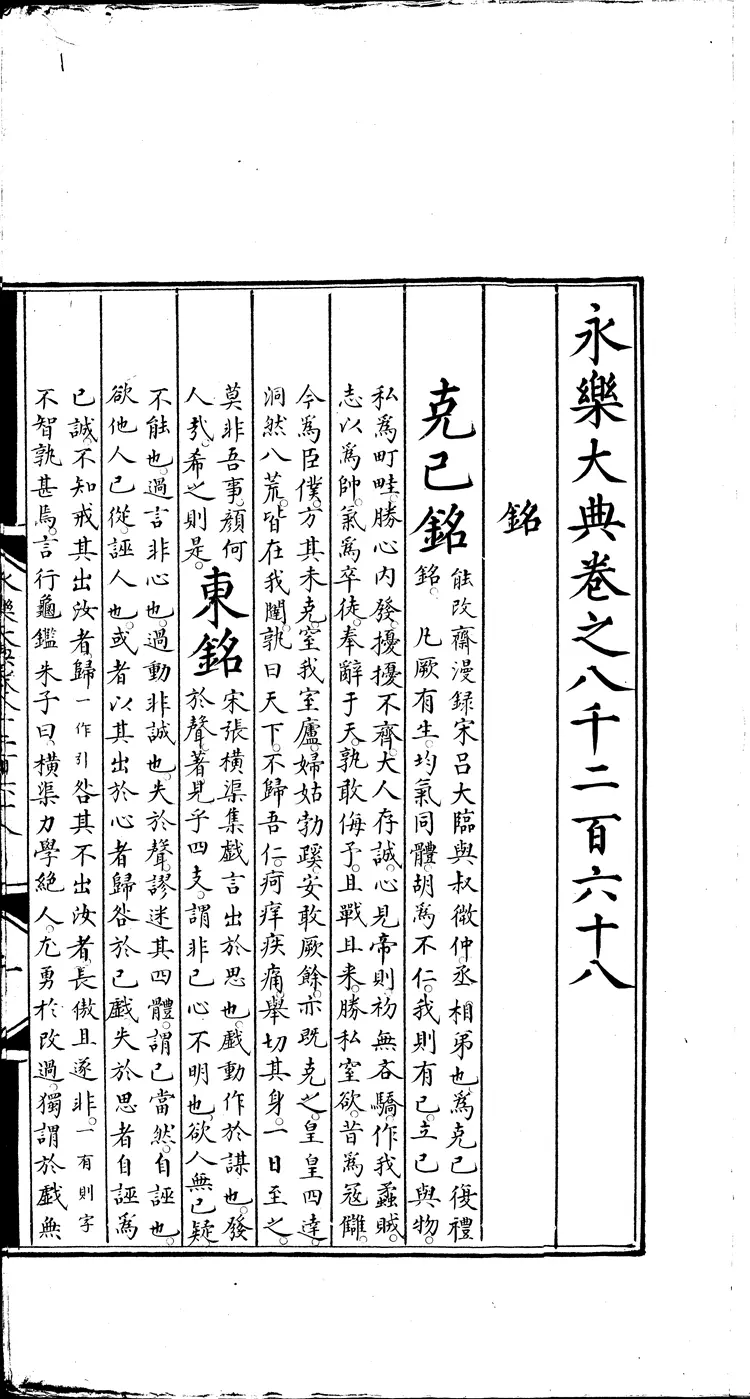 永樂大典卷之八千二百六十八
銘
克己銘
能改齋漫録宋呂大臨與叔微仲丞相弟也爲克己復禮
銘。凡厥有生。均氣同體。胡爲不仁。我則有己。立己與物。
私爲町畦。勝心内發。擾擾不齊。大人存誠。心見帝則。初無吝驕。作我蟊賊。
志以爲帥。氣爲卒徒。奉辭于天。孰敢侮予。且戰且来。勝私窒欲。昔爲寇讎。
今爲臣僕。方其未克。窒我室廬。婦姑勃蹊。安敢厥餘。亦既克之。皇皇四達。
洞然八荒。皆在我闥。孰曰天下。不歸吾仁。疴痒疾痛。舉切其身。一日至之。
莫非吾事。顔何
人哉。希之則是。
東銘
宋張横渠集戯言出於思也。戯動作於謀也。發
於聲。著見乎四支。謂非己心不明也。欲人無己疑
不能也。過言非心也。過動非誠也。失於聲。謬迷其四體。謂己當然。自誣也。
欲他人己從。誣人也。或者以其出於心者歸咎於己戯失於思者自誣爲
己誠。不知戒其出汝者。歸一作引咎其不出汝者。長傲且遂非。一有則字
不智孰甚焉。言行龜鑑朱子曰。横渠力學絶人。尢勇於改過。獨謂於戯無
永樂大典卷八千二百六十八
一